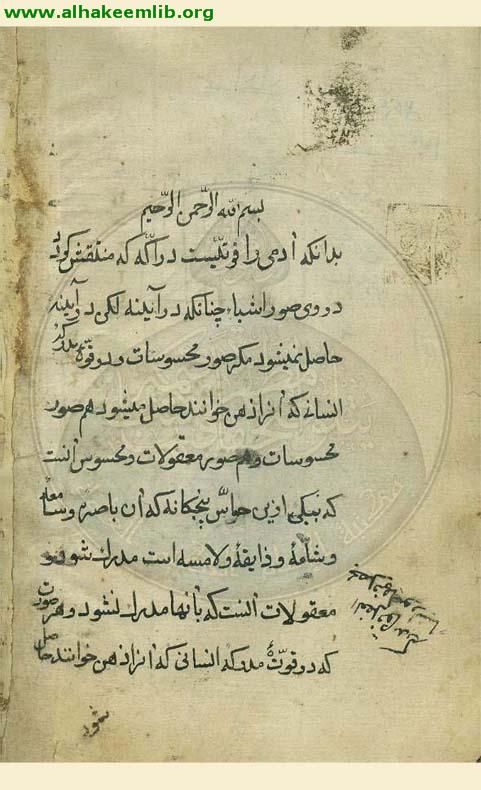 www.alhakeemlib.org
بسم الله الرحمن الرحیم
بدانکه آدمی را قوتیست درّاکه که منتقش گردد
در وی صور اشیاء چنانکه در آینه لکن در آینه
حاصل نمیشود مکر صور محسوسات و در قوّه مدرکه
انسانی که آنرا ذهن خوانند حاصل میشود هم صور
محسوسات و هم صور معقولات و محسوس آنست
که بیکی ازین حواسّ پنجکانه که آن باصره و سامعه
و شامّه و ذایقه و لامسه است مدرك شود و
معقولات آنست که بآنها مدرك نشود و هر صورت
که در قوّت مدرکه انسانی که آنرا ذهن خوانند حاصل
شود